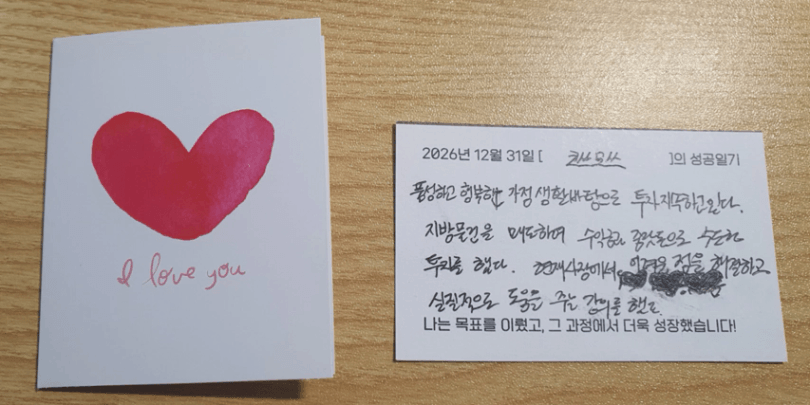 I love you
2026년 12월 31일 [ ]의 성공일기
풍성하고 행복한 가정생활바탕으로 투자재뚜하고있다.
지방물건을 매도하며 수익금과 종잣돈으로 수도권
투자를 했다. 현재시점에서 어려운 점을 해결하고
실질적으로 도움을 주는 강의를 했고.
나는 목표를 이뤘고, 그 과정에서 더욱 성장했습니다!